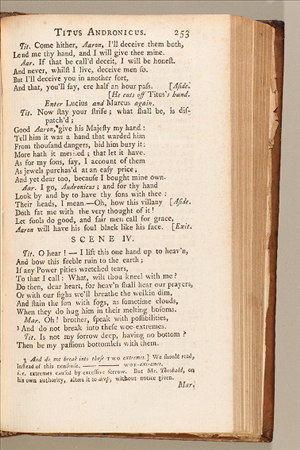 TITUS ANDRONICUS. 253
Tit. Come hither, Aaron, I'll deceive them both,
Lend me thy hand, and I will give thee mine.
Aar. If that be call'd deceit, I will be honest.
And never, whilst I live, deceive men so.
But I'll deceive you in another sort,
And that, you'll say, ere half an hour pass. [Aside.
[He cuts off Titus's hand.
Enter Lucius and Marcus again.
Tit. Now stay your strife; what shall be, is dis-
patch'd;
Good Aaron, give his Majesty my hand:
Tell him it was a hand that warded him
From thousand dangers, bid him bury it:
More hath it merited; that let it have.
As for my sons, say, I account of them
As jewels purchas'd at an easy price;
And yet dear too, because I bought mine own.
Aar. I go, Andronicus; and for thy hand
Look by and by to have thy sons with thee:
Their heads, I mean.—Oh, how this villany [Aside.
Doth fat me with the very thought of it!
Let fools do good, and fair men call for grace,
Aaron will have his soul black like his face. [Exit.
SCENE IV.
Tit. O hear!—I lift this one hand up to heav'n,
And bow this feeble ruin to the earth;
If any Power pities wretched tears,
To that I call: What, wilt thou kneel with me?
Do then, dear heart, for heav'n shall hear our prayers,
Or with our sighs we'll breathe the welkin dim,
And stain the sun with fogs, as sometime clouds,
When they do hug him in their melting bosoms.
Mar. Oh! brother, speak with possibilities,
3 And do not break into these woe-extremes.
Tit. Is not my sorrow deep, having no bottom?
Then be my passions bottomless with them.
3 And do not break into these two extremes.] We should read,
instead of this nonsense, —— woe-extremes.
i.e. extremes caused by excessive sorrow. But Mr. Theobald, on
his own authority, alters it to deep, without notice given.
Mar.